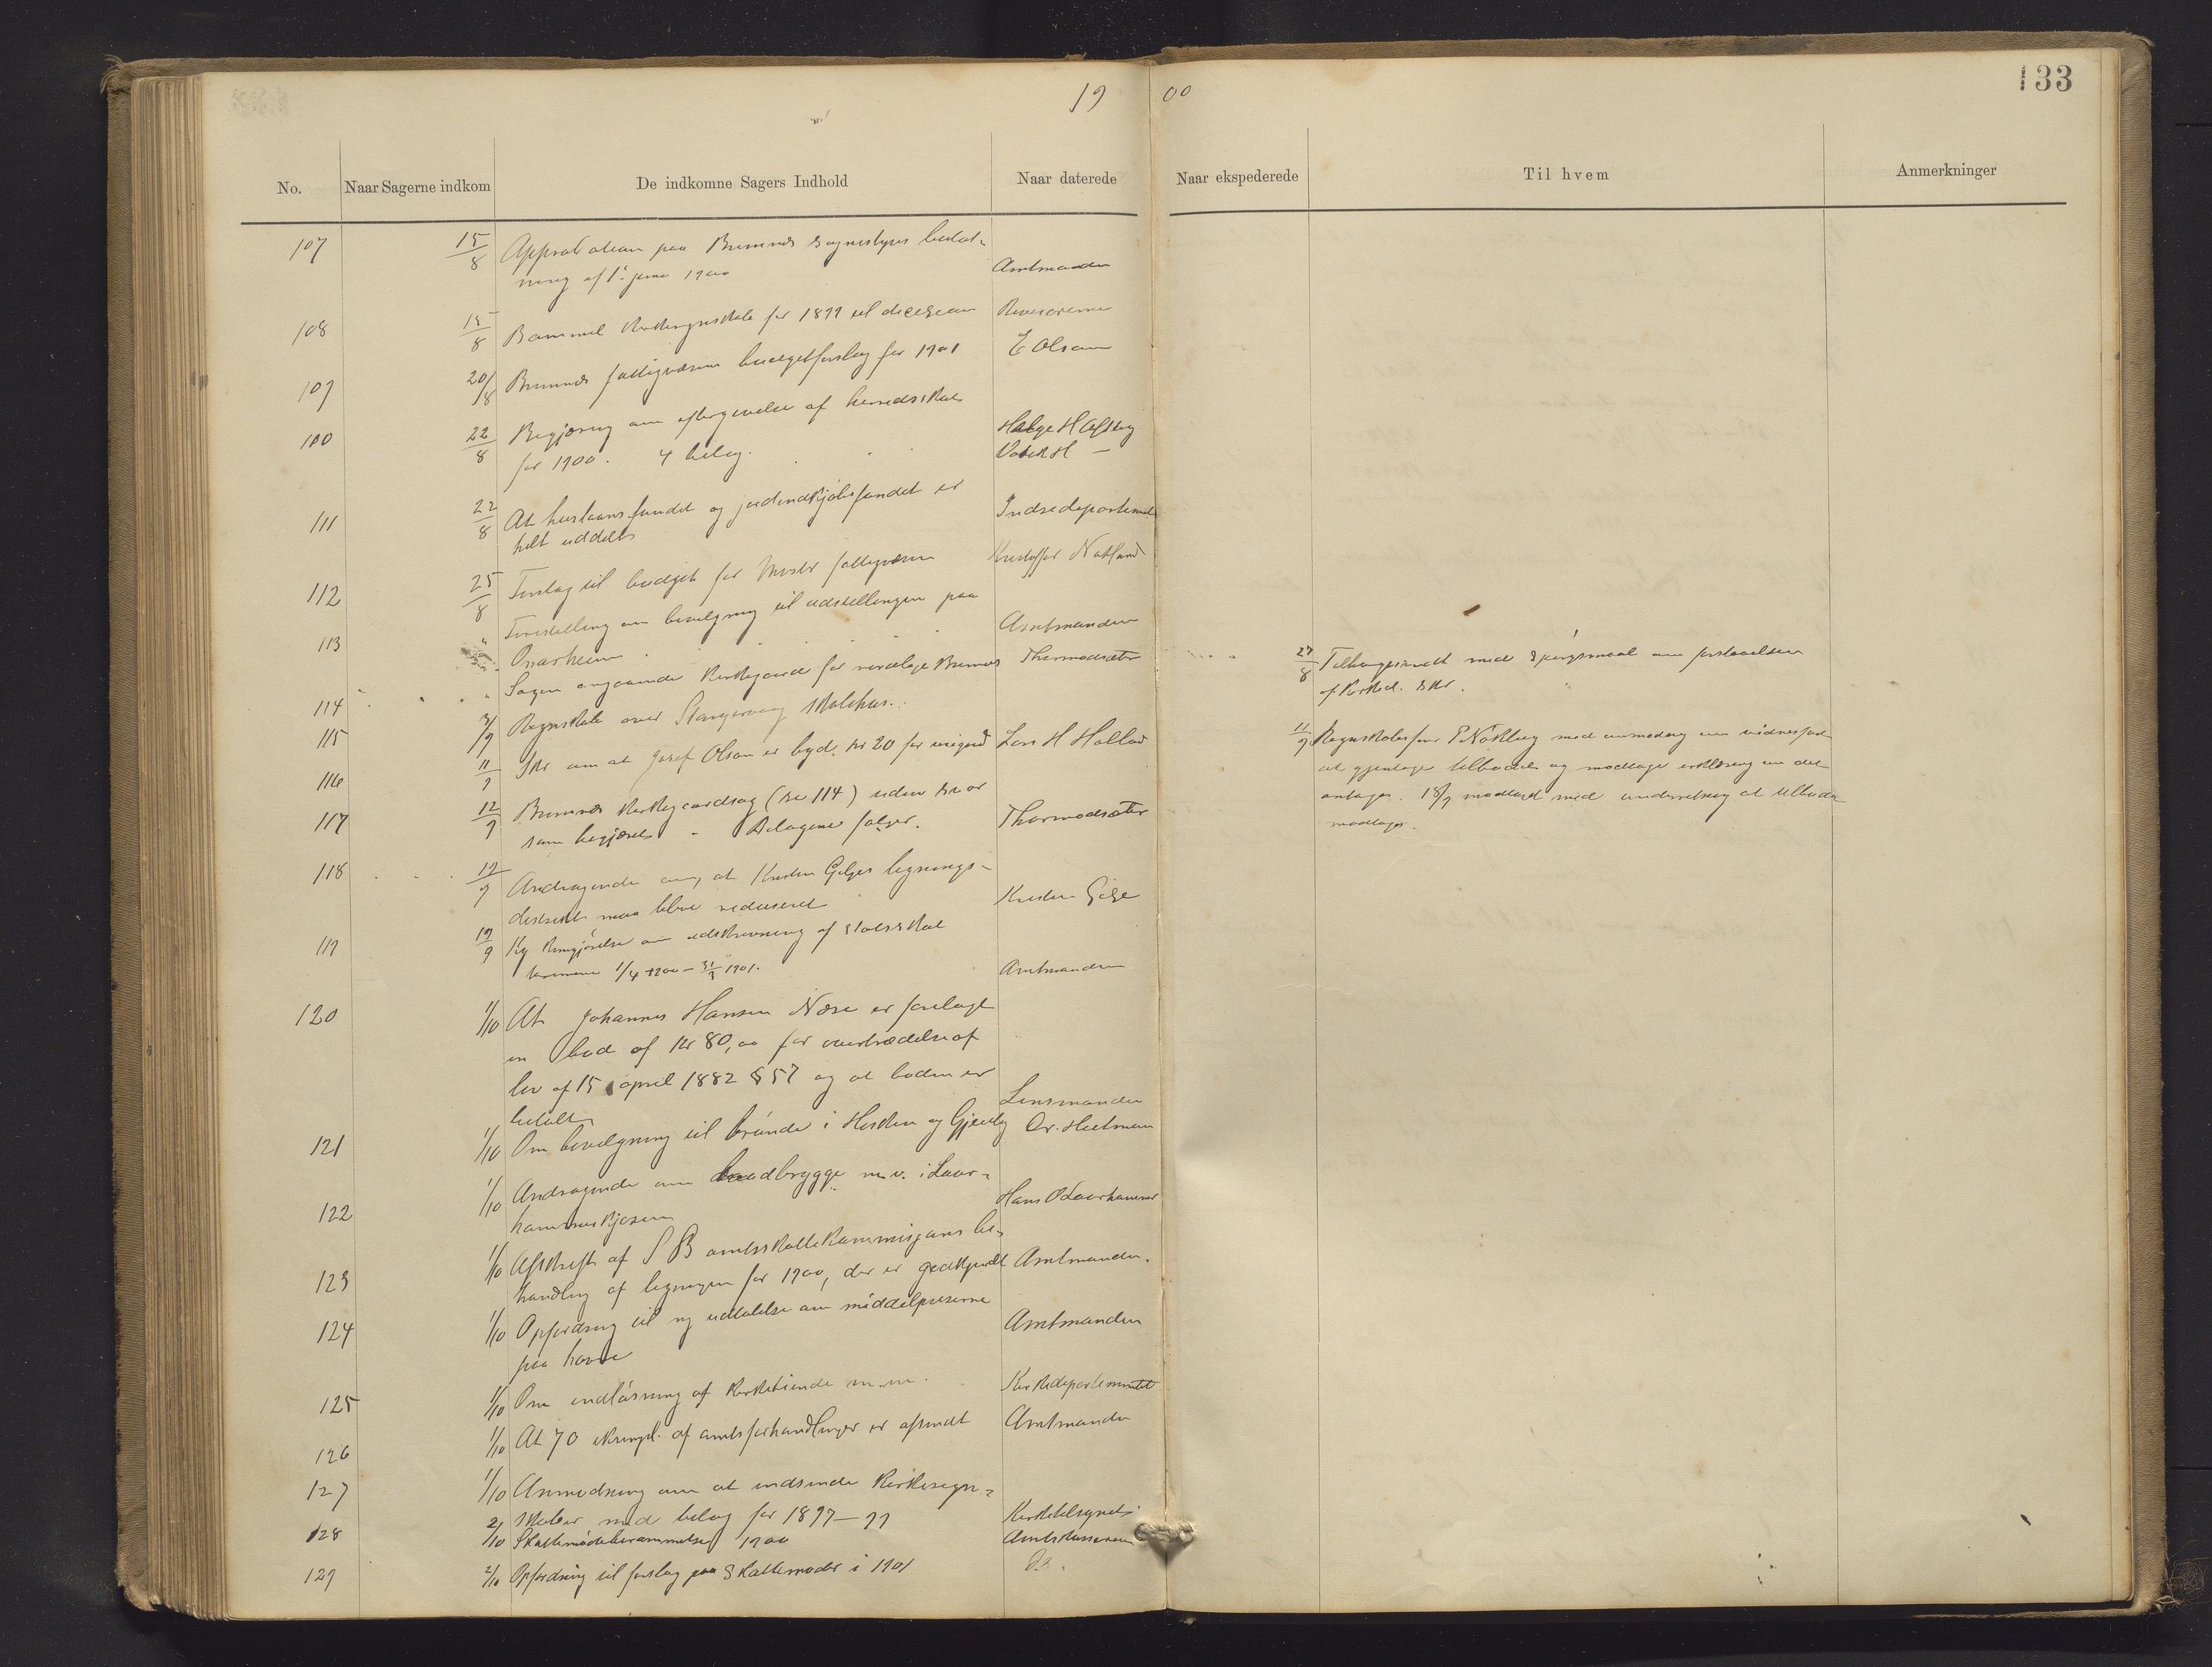 1900
133
No. Naar Sagerne indkom De indkomne Sagers Indhold Naar daterede Naar ekspederede Til hvem Anmerkninger
107 15/8 Approbation paa Bremnes sognestyres beslut-
ning af 1ste juni 1900 Amtmanden
108 15/8 Bømmel Kirkeregnskab for 1899 til decision Revisorerne
109 20/8 Bremnes fattigvæsens budgetforslag for 1901 E Olsen
110 22/8 Begjæring om eftergivelse af herredsskat Helge H
for 1900. 4 bilag.
111 22/8 At huslaansfondet og jordindkjøbsfondet er Indredepartementet
helt uddelt
112 25/8 Forslag til budget for Moster fattigvæsen Kristoffer Notland
113 " Forestilling om bevilgning til udstillingen paa
Onarheim Amtmanden
114 " Sagen angaaende Kirkegaard for nordlige Bremnes Thormodsæter 27/8 Tilbagesendt med Spørgsmaal om forstaaelsen
af Kirked. Skr.
115 3/9 Regnskab over Stangervaag skolehus.
116 11/9 Skr om at Josef Olsen er byd. kr 20 for Lars H Hollad 11/9 Regnskabsfører P Nøkling med anmodning om vidnesfast
at gjentage tilbudet og modtage erklæring om det
antages. 18/9 modtaget med underretning at tilbudet
modtages.
117 12/9 Bremnes Kirkegaardsag (No 114) uden svar
som begjæret - Bilagene følger. Thormodsæter
118 19/9 Andragende om, at Kristen Giljes ligningsdistrikt
maa blive reduceret Kristen Gilje
119 19/9 Kg Kungjørelse om udskrivning af statsskat
terminen 1/4 1900 - 31/3 1901. Amtmanden
120 1/10 At Johannes Hansen Næse er forelagt
en bod af Kr 80,00 for overtrædelse af
lov af 15 april 1882 § 57 og at boden er
betalt Lensmanden
121 1/10 Om bevilgning til brønde i Hisken og Gjeitøy Dr. Heitman
122 1/10 Andragende om landbrygge m.v. i Laur-
hammerkjosen Hans O Laurhammer
123 1/10 Afskrift af S B amtsskattekommisjons be-
handling af ligningen for 1900, der er godkjendt Amtmanden.
124 1/10 Opfordring til ny uddtalelse om middelpriserne
paa havre Amtmanden
125 1/10 Om indløsning af Kirketiende m.m. Kirkedepartementet
126 1/10 At 70 exempl. af amtsforhandlinger er afsendt Amtmanden
127 1/10 Anmodning om at indsende Kirkeregn-
skaber med bilag for 1897-99 Kirketilsynet
128 2/10 Skattemødeberammelser 1900 Amtskassereren
129 2/10 Opfordring til forslag paa Skattemøder i 1901 Do.